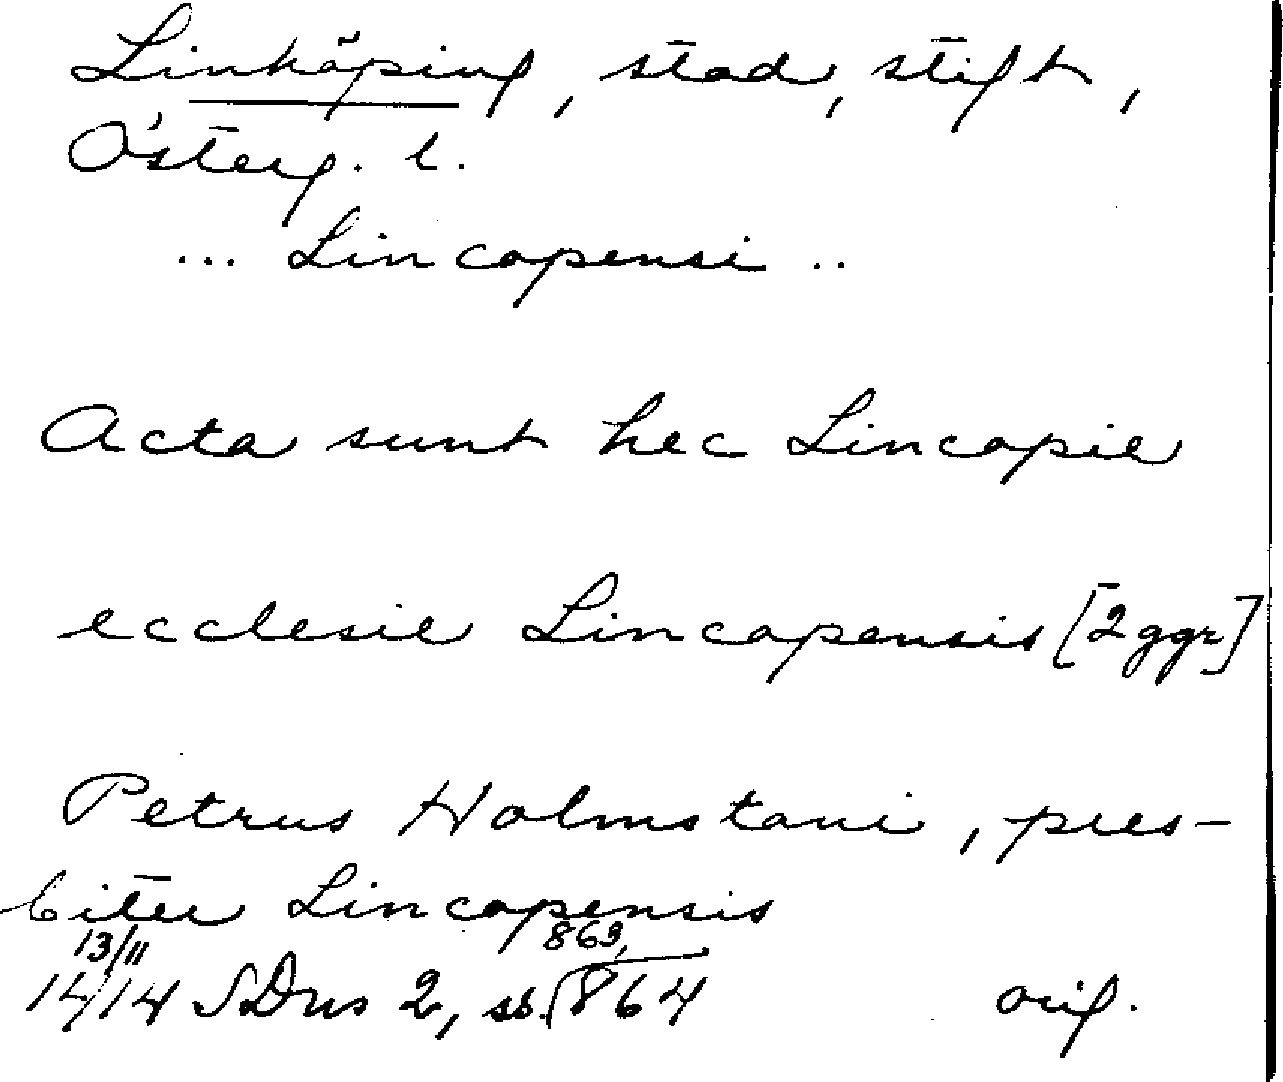 Linköping, stad, stift,
Österg. l.
... Lincopensi ..
Acta sunt hec Lincopie
ecclesie Lincopensis [2 ggr]
Petrus Holmstani, pres-
biter Lincopensis
13/11 863,
14/14 SDns 2, ss. 864 orig.